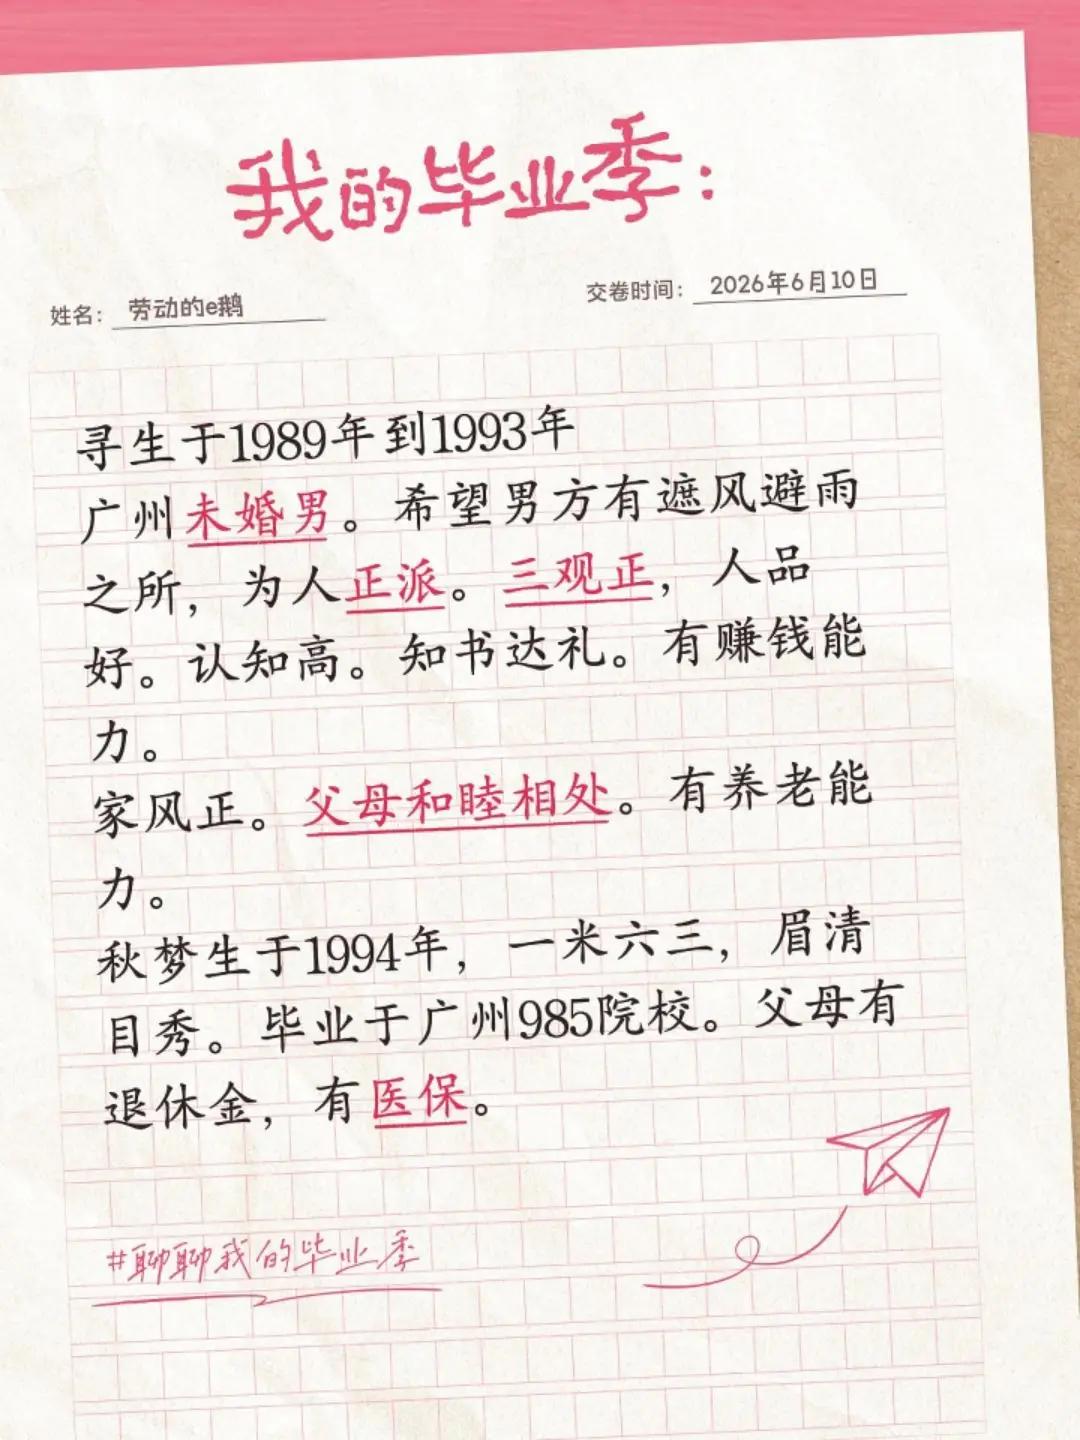 我的毕业季：
姓名： 劳动的e鹅
交卷时间： 2026年6月10日
寻生于1989年到1993年
广州未婚男。希望男方有遮风避雨
之所，为人正派。三观正，人品
好。认知高。知书达礼。有赚钱能
力。
家风正。父母和睦相处。有养老能
力。
秋梦生于1994年，一米六三，眉清
目秀。毕业于广州985院校。父母有
退休金，有医保。
#聊聊我的毕业季